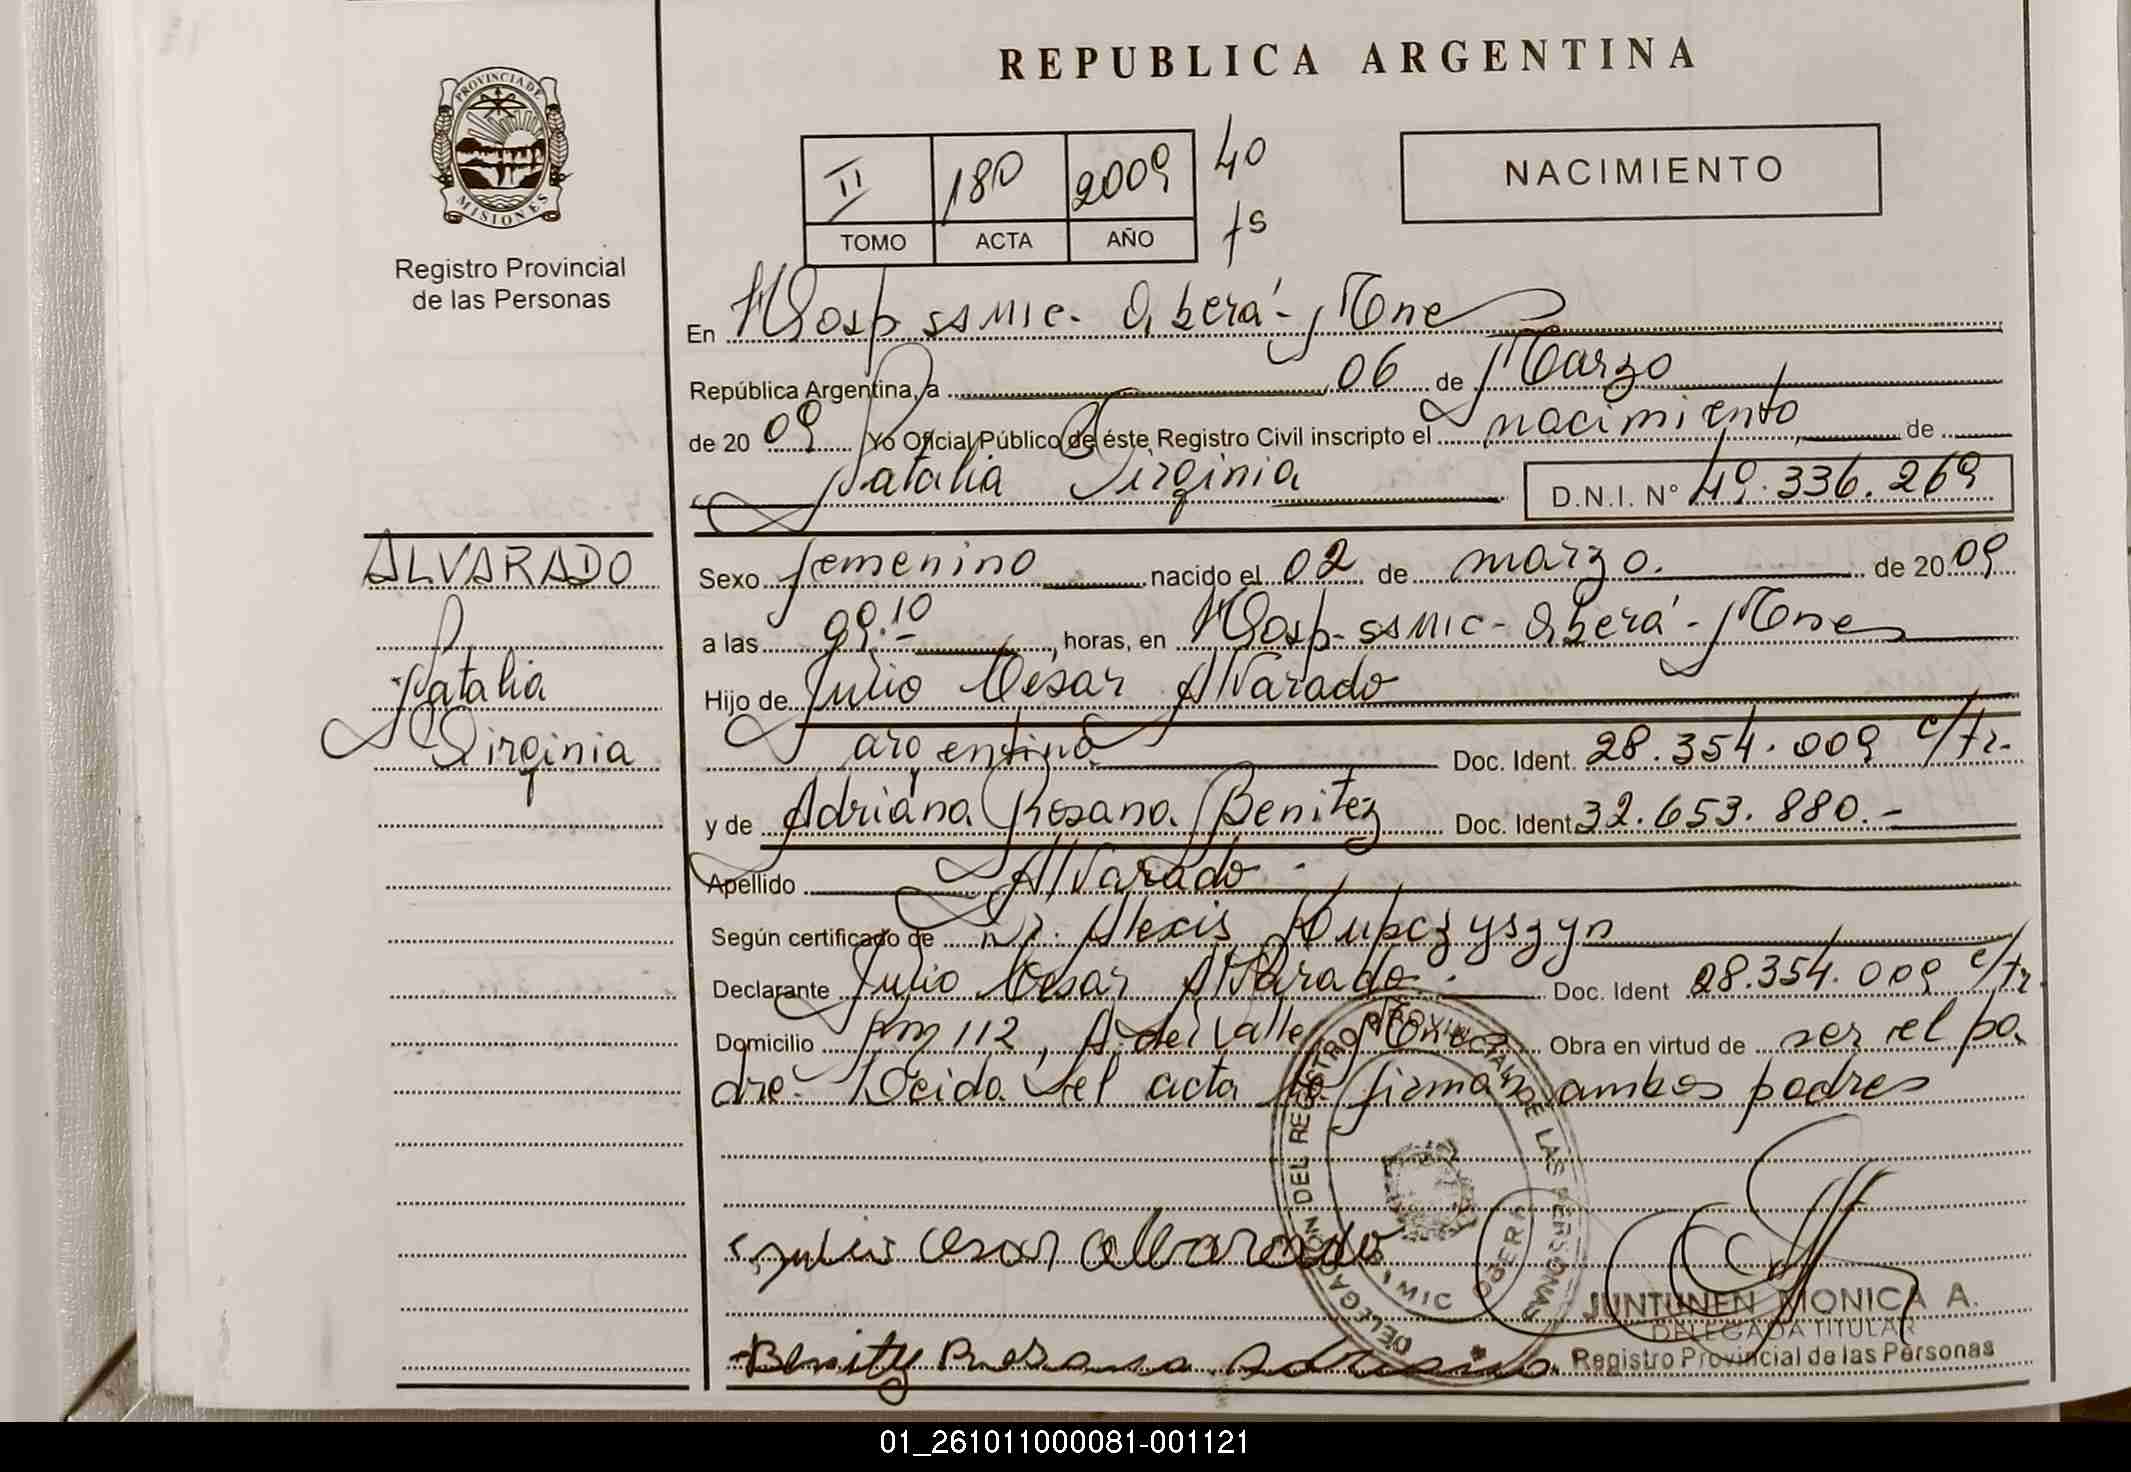 PROVINCIA DE
MISIONES
Registro Provincial
de las Personas
REPUBLICA ARGENTINA
II 180 2009 40
TOMO ACTA AÑO fs
NACIMIENTO
En Hosp. SAMIC. Oberá - Mnes
República Argentina, a 06 de Marzo
de 2009 Yo Oficial Público de éste Registro Civil inscripto el nacimiento de
Natalia Virginia D.N.I. N° 49.336.269
ALVARADO
Natalia
Virginia
Sexo femenino nacido el 02 de marzo. de 2009
a las 09:10 horas, en Hosp. SAMIC - Oberá - Mnes
Hijo de Julio César Alvarado
argentina Doc. Ident. 28.354.009 c/tr.
y de Adriana Rosana Benitez Doc. Ident 32.653.880.-
Apellido Alvarado.-
Según certificado de Dr. Alexis Kupczyszyn
Declarante Julio César Alvarado.- Doc. Ident 28.354.009 c/tr.
Domicilio Km 112, A. del Valle, Mnes. Obra en virtud de ser el pa-
dre. Leida el acta la firman ambos padres
Julio cesar alvarado
Benitez Rosana Adriana
DELEGACION DEL REGISTRO PROVINCIAL DE LAS PERSONAS
SAMIC OBERA
JUNTUNEN MONICA A.
DELEGADA TITULAR
Registro Provincial de las Personas
01_261011000081-001121